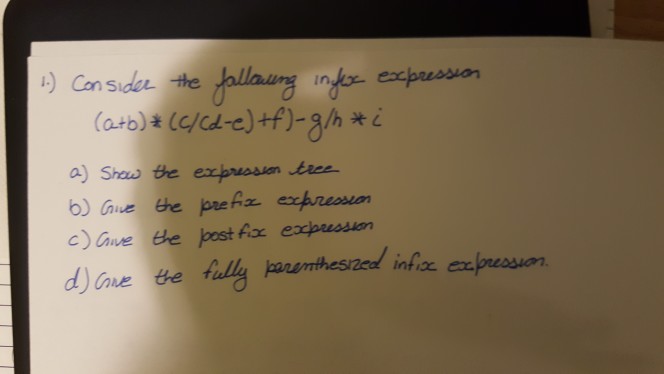 1.) Consider the following infix expression
(a+b)*(c/(d-e)+f)-g/h*i
a) Show the expression tree
b) Give the prefix expression
c) Give the postfix expression
d) Give the fully parenthesized infix expression.